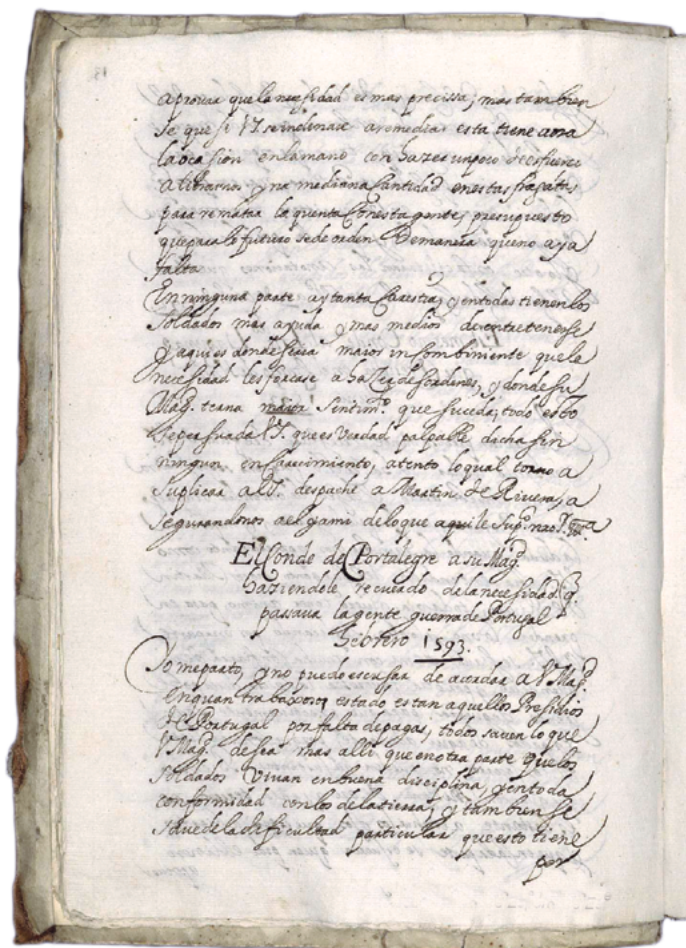 aprovar que la necesidad es mas precissa; mas tambien
se que si V.S. se inclinare a remedia esta tiene aora
la ocasion en la mano con hazer un poco de esfuerço
a librarnos una mediana Cantidad en estas fragatas
para rematar la quenta Con esta gente, presupuesto
que para lo futuro se de orden Demanera que no aya
falta
En ninguna parte ay tanta Carestia, y en todas tienen los
soldados mas ayuda y mas medios de entretenerse
y aqui es donde seria maior inconbiniente que le
necesidad les forcase a hazer desordenes, y donde su
Mag.d terna maior sentim.to que suceda, todo esto
se persuada V.S. que es Verdad palpable dicha sin
ningun encarecimiento, atento lo qual torno a
suplicar a V.S. despache a Martin de Rivera, a
segurandonos a el y a mi de lo que aqui le sup.co nro S.r
El Conde de Portalegre a su Mag.d
haziendole recuerdo de la necesidad q.
passava la gente guerra de Portugal
hebrero 1593.
Yo me parto, y no puedo escusar de acordar a V Mag.d
en quan trabaxoso estado estan aquellos Presidios
de Portugal por falta de pagas, todos saven lo que
V Mag.d desea mas alli que en otra parte que los
soldados Vivan en buena disciplina, y en toda
conformidad con los de la tierra, y tambien se
save de la dificultad particular que esto tiene
por